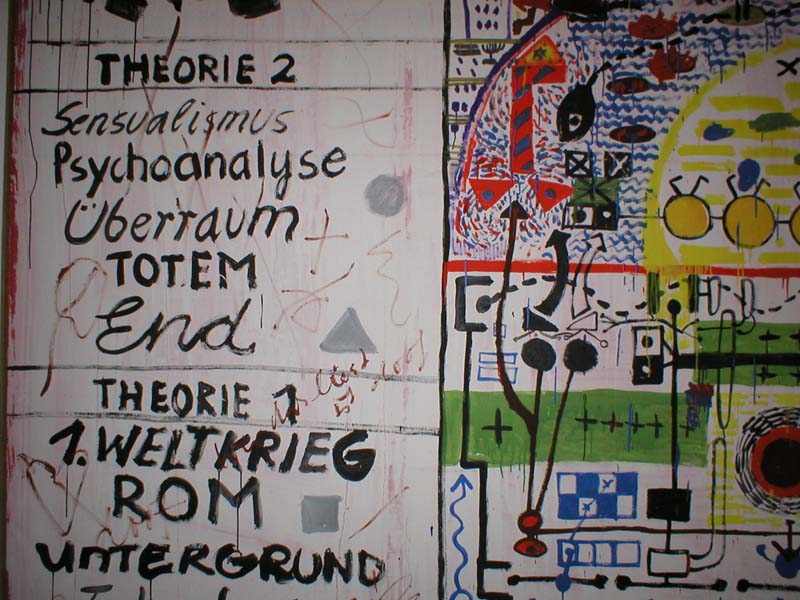 THEORIE 2
Sensualismus
Psychoanalyse
Überraum
TOTEM
End
THEORIE 1
1. WELTKRIEG
ROM
UNTERGRUND